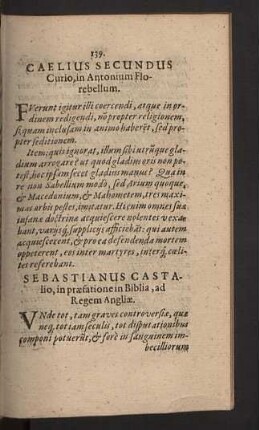 139.
CAELIUS SECUNDUS
Curio, in Antonium Flo-
rebellum.
FVerunt igitur illi coercendi, atque in or-
dinem redigendi, nō propter religionem,
si quam inclusam in animo haberēt, sed pro-
pter seditionem.
Item: quis ignorat, illum sibi utrūque gla-
dium arrogare? ut quod gladiu oris non po-
test, hoc ipsum secet gladius manus? Qua in
re non Sabellium modò, sed Arium quoque,
& Macedonium, & Mahometem, tres maxi-
mas orbis pestes, imitatur. Hi enim omnes suæ
insanæ doctrinæ acquiescere nolentes vexa-
bant, variisq́; suppliciis afficiebāt: qui autem
acquiescerent, & pro ea defendenda mortem
oppeterent, eos inter martyres, interq́; cæli-
tes referebant.
SEBASTIANUS CASTA-
lio, in præfatione in Biblia, ad
Regem Angliæ.
VNde tot, tam graves controversiæ, quæ
neq. tot iam seculis, tot disputationibus
componi potuerūt, & ferè in sanguinem im-
becilliorum